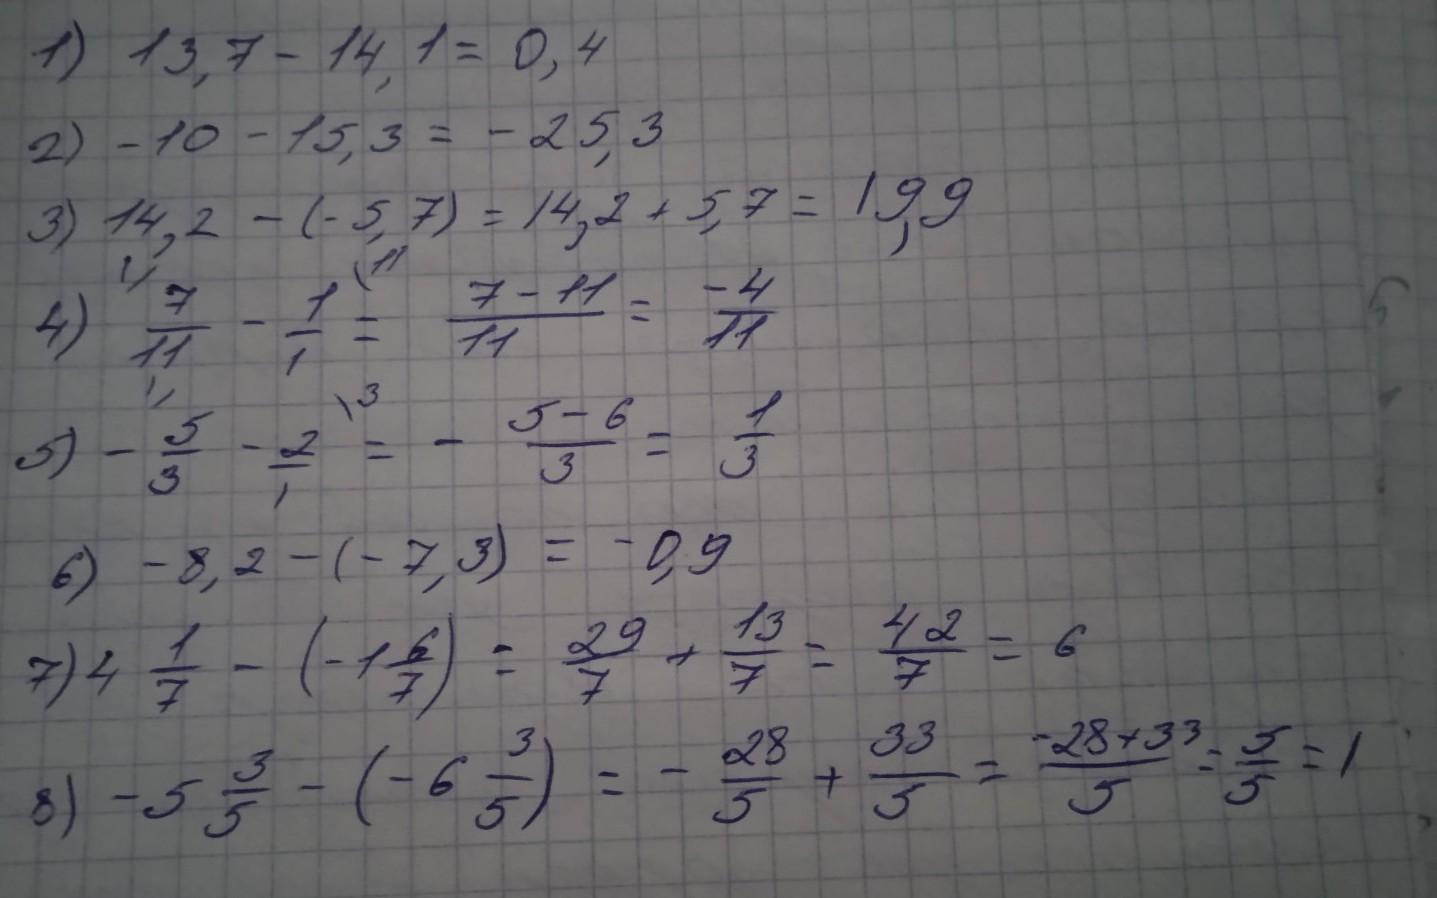 1) 13,7 - 14,1 = 0,4
2) -10 - 15,3 = -25,3
3) 14,2 - (-5,7) = 14,2 + 5,7 = 19,9
4) 7/11 - 1/1 \11 = 7-11/11 = -4/11
5) - 5/3 - 2/1 \3 = - 5-6/3 = 1/3
6) -8,2 - (-7,3) = -0,9
7) 4 1/7 - (-1 6/7) = 29/7 + 13/7 = 42/7 = 6
8) -5 3/5 - (-6 3/5) = - 28/5 + 33/5 = -28+33/5 = 5/5 = 1